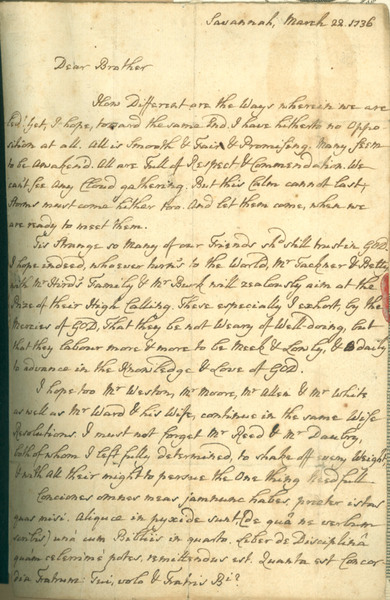 Savannah, March 22. 1736
Dear Brother
How Different are the Ways wherein we are
led! Yet, I hope, toward the same End. I have hitherto no Oppo
sition at all. All is Smooth & Fair & Promising. Many seem
to be Awakend. All are Full of Respect & Commendation. We
can't see any Cloud gathering. But this Calm cannot last;
Storms must come hither too. And let them come, when we
are ready to meet them.
Tis Strange so many of our Friends shd still trust in GOD.
I hope indeed, whoever turns to the World, Mr Tackner & Betty
with Mr Hird's Family & Mr Burk will zealously aim at the
Prize of their High Calling. These especially I exhort, by the
Mercies of GOD, That they be not Weary of Well-doing, but
that they labour more & more to be Meek & Lowly, & daily
to advance in the Knowledge & Love of GOD.
I hope too Mr Weston, Mr Moore, Mr Allen & Mr White
as well as Mr Ward & his Wife, continue in the same Wise
Resolutions. I must not forget Mr Reed & Mr Daubry,
both of whom I left fully determined, to shake off every Weight
& with All their might to persue the One thing Needfull
Conciones omnes meas jamnunc habes, praeter istas
quas misi. Aliquae in pyxide sunt (de quâ ne verbum
scribis) unà cum Bibliis in quarto. Liber de Disciplinâ
quam celerrimè potes, remittendus est. Quanta est Concor
dia Fratrum: Tui, volo & Fratris B:?